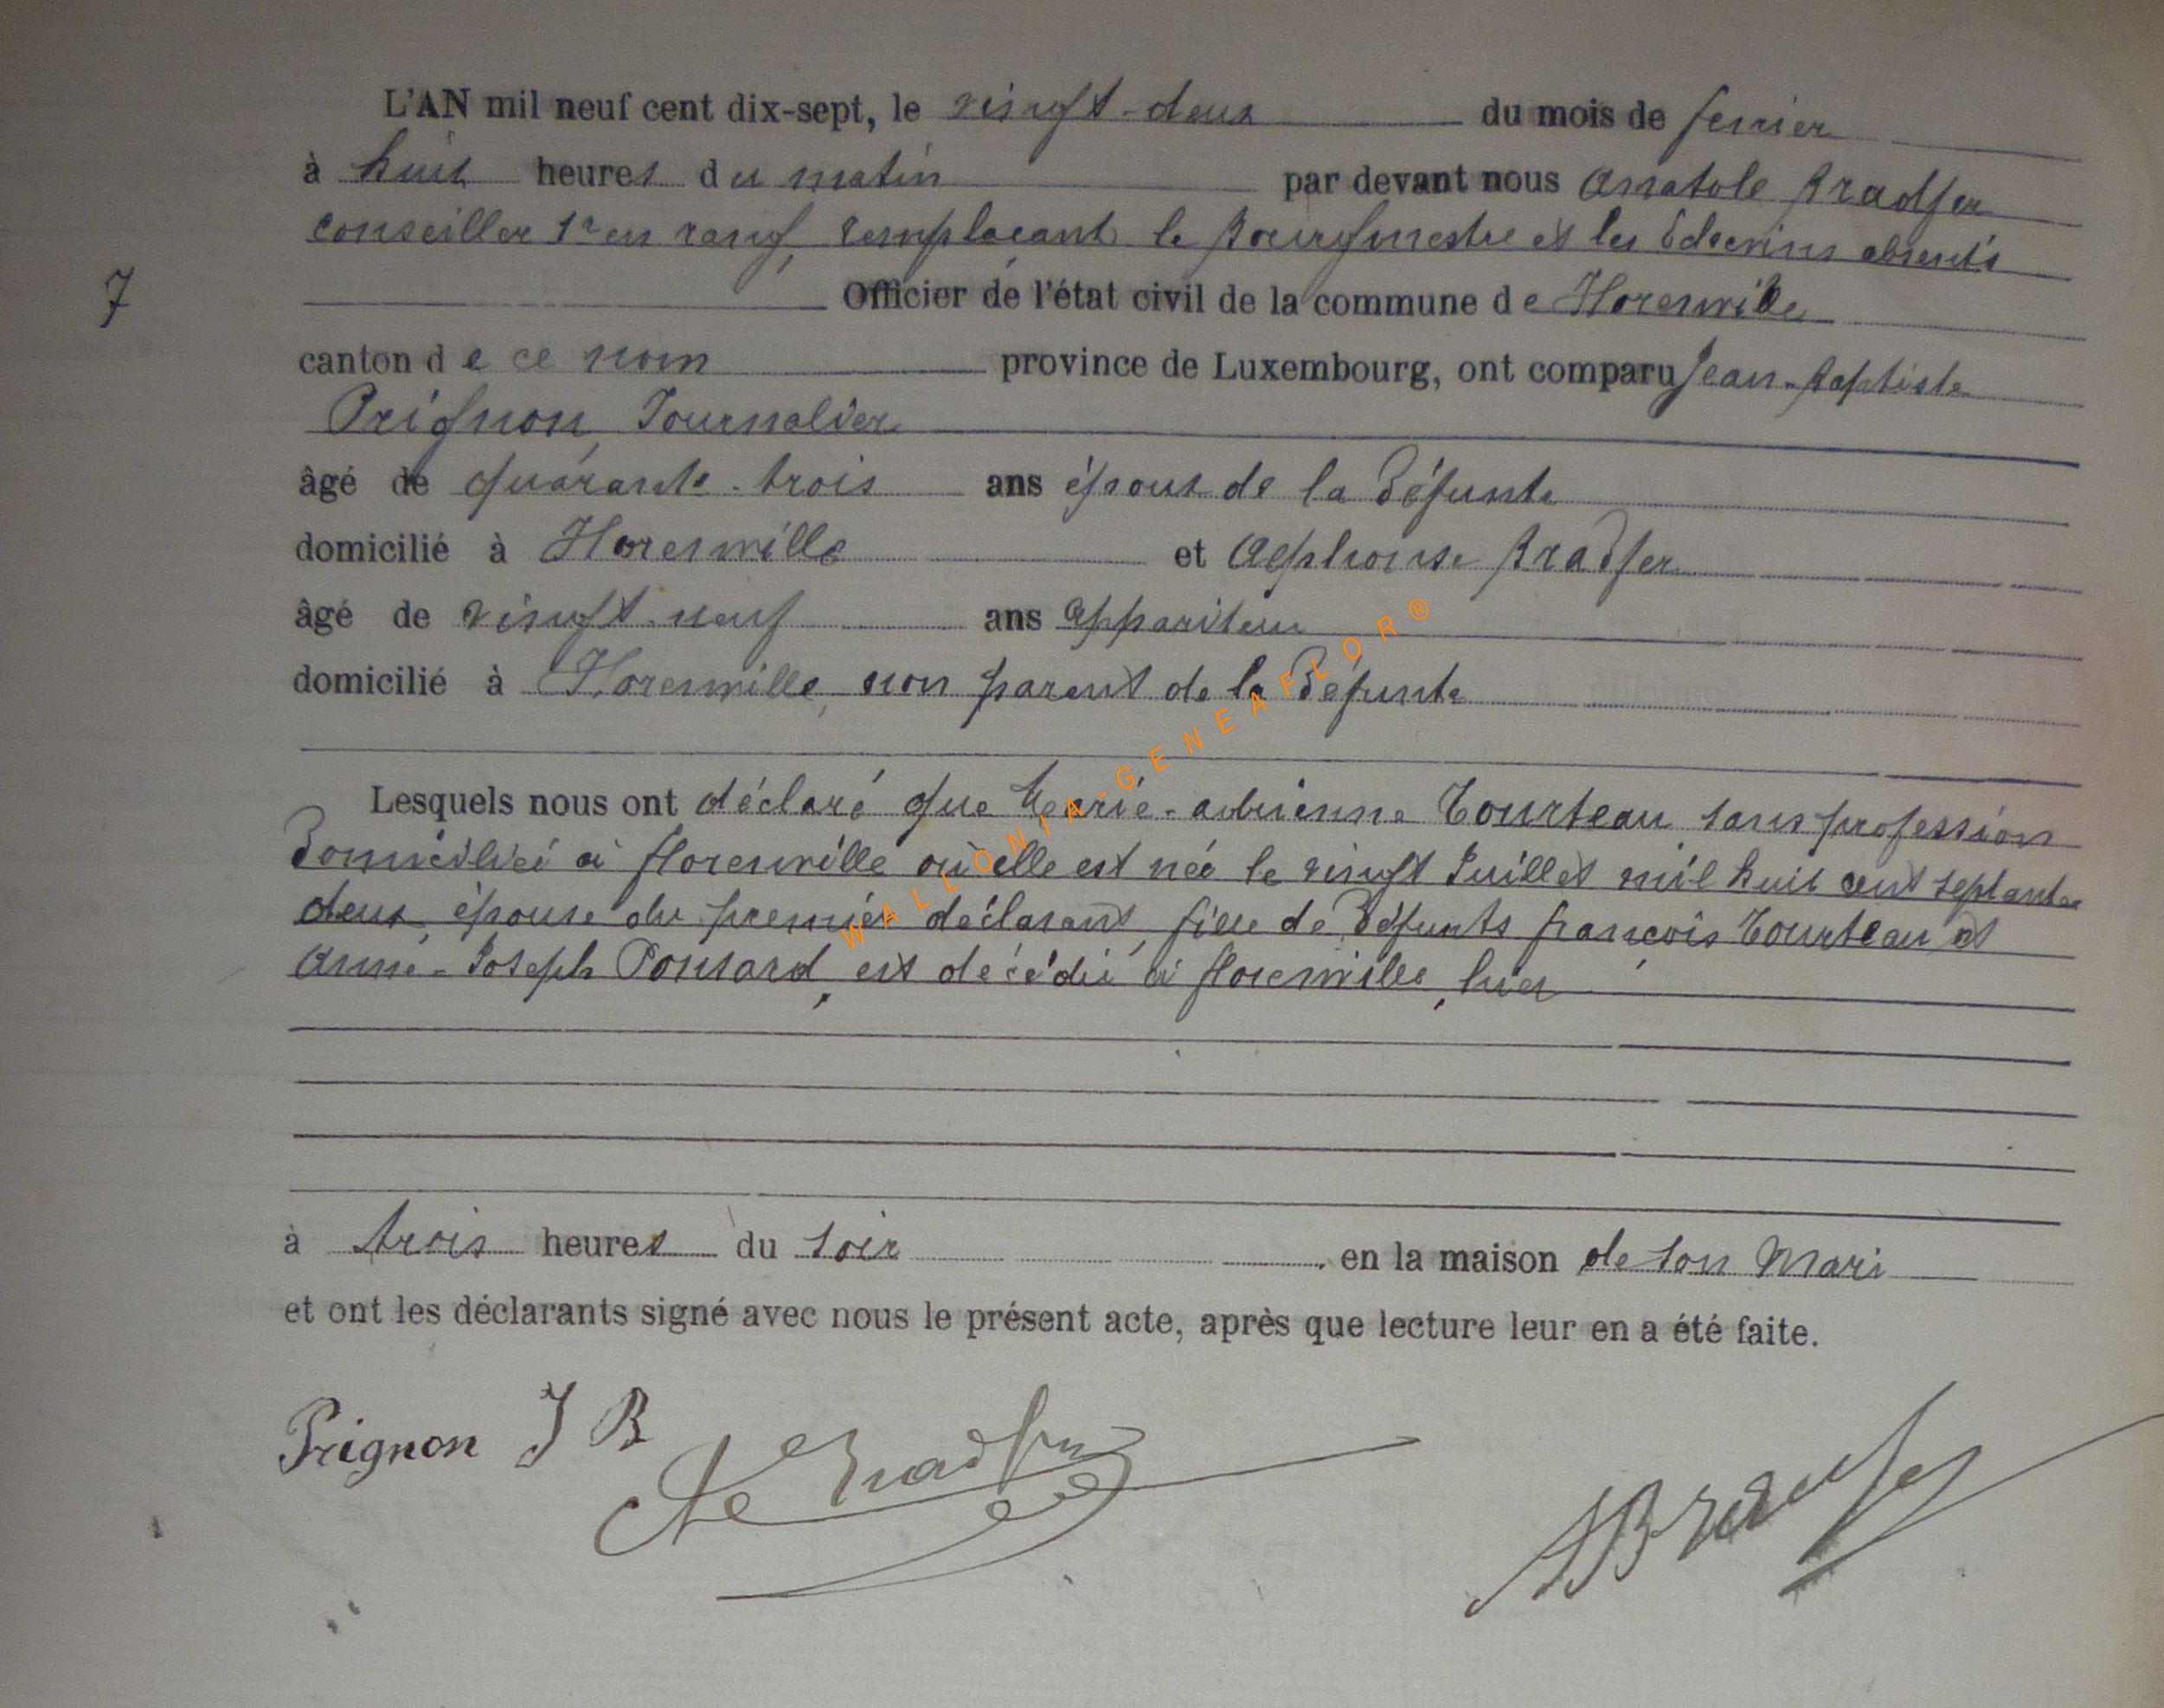 L'AN mil neuf cent dix-sept, le vingt-deux du mois de fevrier
à huit heures du matin par devant nous Anatole Bradfer
conseiller 1er en rang, remplaçant le Bourgmestre et les Echevins absents
7
Officier de l'état civil de la commune de Florenville
canton de ce nom province de Luxembourg, ont comparu Jean-Baptiste
Prignon, Journalier
âgé de quarante-trois ans époux de la Défunte
domicilié à Florenville et Alphonse Bradfer
âgé de vingt-neuf ans appariteur
domicilié à Florenville, non parent de la Défunte
Lesquels nous ont déclaré que Marie-Adrienne Tourteau sans profession
Domiciliée à Florenville où elle est née le vingt Juillet mil huit cent septante
deux, épouse du premier déclarant, fille de Défunts François Tourteau et
Anne-Joseph Ponsard, est décédée à Florenville, hier
à trois heures du soir en la maison de son Mari
et ont les déclarants signé avec nous le présent acte, après que lecture leur en a été faite.
Prignon J B
Al Bradfer
ABradfer
WALLONIA-GENEAFLOR®